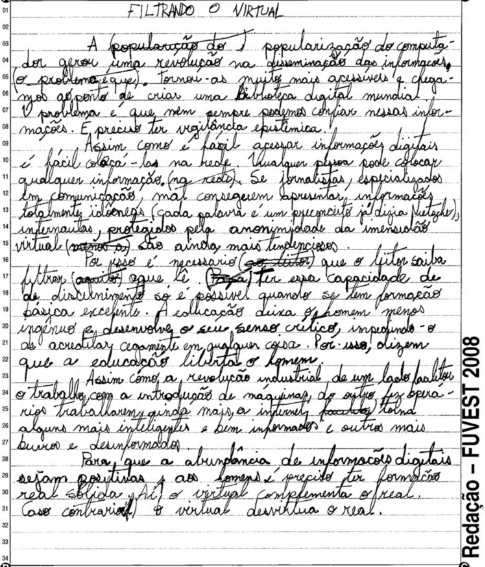 FILTRANDO O VIRTUAL
A (popularização do) popularização do computa-
dor gerou uma revolução na disseminação das informações,
(o problema é que) tornou-as muito mais acessíveis e chega-
mos ao ponto de criar uma Biblioteca digital mundial.
O problema é que nem sempre podemos confiar nessas infor-
mações. É preciso ter vigilância epistêmica.
Assim como é fácil acessar informações digitais
é fácil colocá-las na rede. Qualquer pessoa pode colocar
qualquer informação (na rede). Se jornalistas, especializados
em comunicação, mal conseguem apresentar informações
totalmente idôneas (cada palavra é um preconceito já dizia Nietzche),
internautas, protegidos pela anonymidade da imensidão
virtual são ainda mais tendenciosos.
Por isso é necessário (ao leitor) que o leitor saiba
filtrar (aquilo) oque lê. (Para) Ter essa capacidade de
de discernimento só é possível quando se tem formação
básica excelente. A educação deixa o homem menos
ingênuo e desenvolve o seu senso crítico, impedindo-o
de acreditar cegamente em qualquer coisa. Por isso, dizem
que a educação liberta o homem.
Assim como a revolução industrial, de um lado facilitou
o trabalho com a introdução de máquinas, do outro fez operá-
rios trabalharem ainda mais, a internet torna
alguns mais inteligentes e bem informados e outros mais
burros e desinformados.
Para que a abundância de informações digitais
sejam positivas aos homens é preciso ter formação
real sólida. Aí o virtual complementa o real.
Caso contrário, o virtual desvirtua o real.
Redação – FUVEST 2008